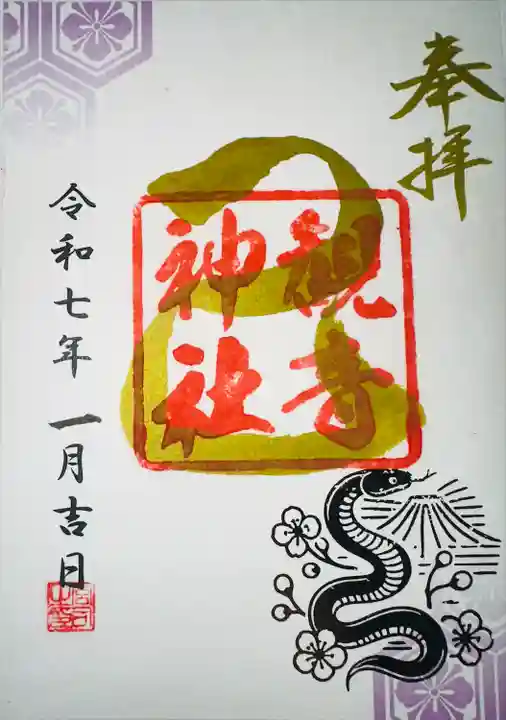 奉拝
観音
神社
令和七年 一月吉日